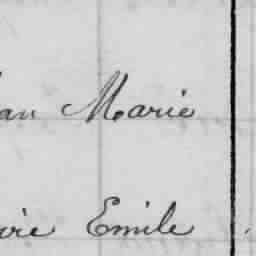 an Marie
re Emile